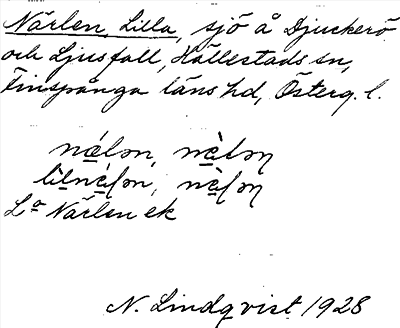 Närlen, Lilla, sjö å Djuckerö
och Ljusfall, Hällestads sn,
Finspånga läns hd, Österg. l.
La Närlen ek
N. Lindqvist 1928